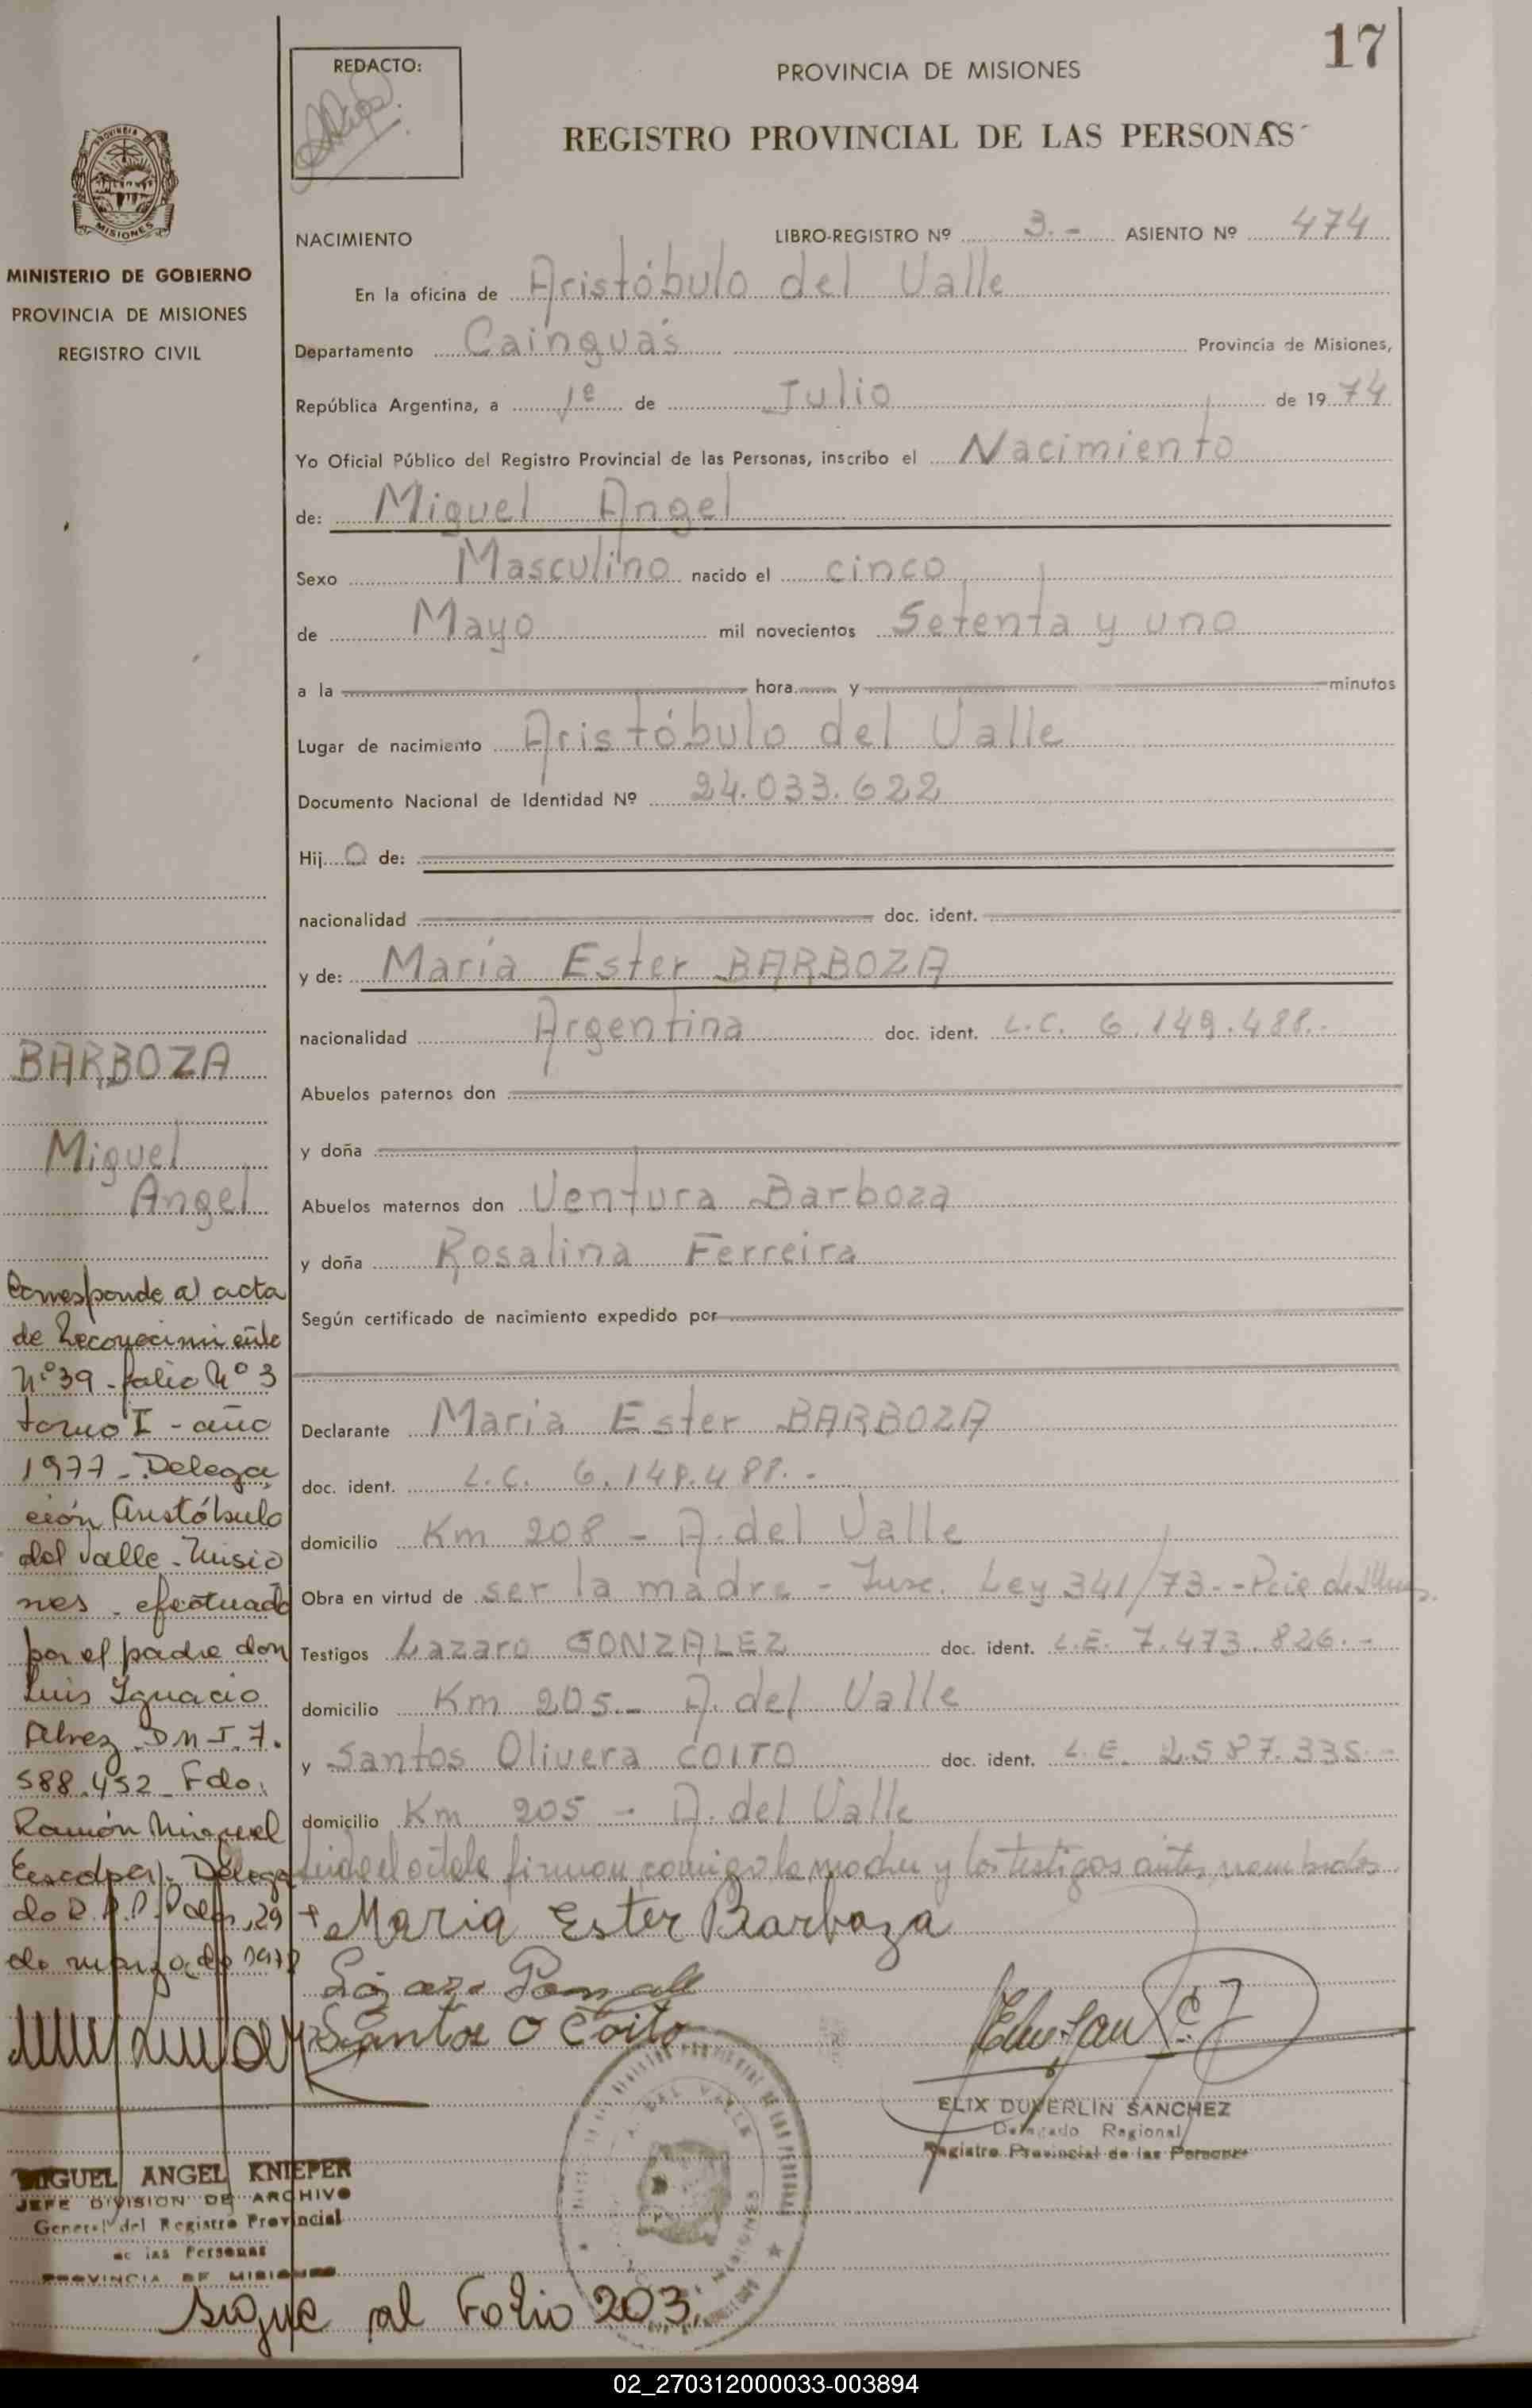 17
REDACTO:
PROVINCIA DE MISIONES
REGISTRO PROVINCIAL DE LAS PERSONAS
PROVINCIA
MISIONES
MINISTERIO DE GOBIERNO
PROVINCIA DE MISIONES
REGISTRO CIVIL
NACIMIENTO LIBRO-REGISTRO Nº 3.- ASIENTO Nº 474
En la oficina de Aristóbulo del Valle
Departamento Cainguás Provincia de Misiones,
República Argentina, a 1º de Julio de 1974
Yo Oficial Público del Registro Provincial de las Personas, inscribo el Nacimiento
de: Miguel Angel
Sexo Masculino nacido el cinco
de Mayo mil novecientos Setenta y uno
a la hora y minutos
Lugar de nacimiento Aristóbulo del Valle
Documento Nacional de Identidad Nº 24.033.622
Hij o de:
nacionalidad doc. ident.
y de: María Ester BARBOZA
nacionalidad Argentina doc. ident. L.C. 6.149.488.-
Abuelos paternos don
y doña
Abuelos maternos don Ventura Barboza
y doña Rosalina Ferreira
Según certificado de nacimiento expedido por
Declarante Maria Ester BARBOZA
doc. ident. L.C. 6.149.488.-
domicilio Km 208 - A. del Valle
Obra en virtud de ser la madre - Insc. Ley 341/73.- Pcia de Mnes.
Testigos Lazaro GONZALEZ doc. ident. L.E. 7.473.826.-
domicilio Km 205 - A. del Valle
y Santos Olivera COITO doc. ident. L.E. 2.587.335.-
domicilio Km 205 - A. del Valle
Leida el acta la firman conmigo la madre y los testigos antes nombrados.
+ Maria Ester Barboza
Santo O Coito
ELIX DUVERLIN SANCHEZ
Delegado Regional
Registro Provincial de las Personas
BARBOZA
Miguel
Angel
Corresponde al acta
de Reconocimiento
Nº 39 - folio Nº 3
tomo I - año
1977 - Delega
ción Aristóbulo
del Valle - Misio
nes - efectuado
por el padre don
Luis Ignacio
Alvez D N I. 7.
588.452 - Fdo:
Ramón Miguel
Delega
do R.P.P. Pdas, 29
de marzo de 1978
MIGUEL ANGEL KNIEPER
JEFE DIVISION DE ARCHIVO
General del Registro Provincial
de las Personas
PROVINCIA DE MISIONES
sigue al Folio 203.
02_270312000033-003894